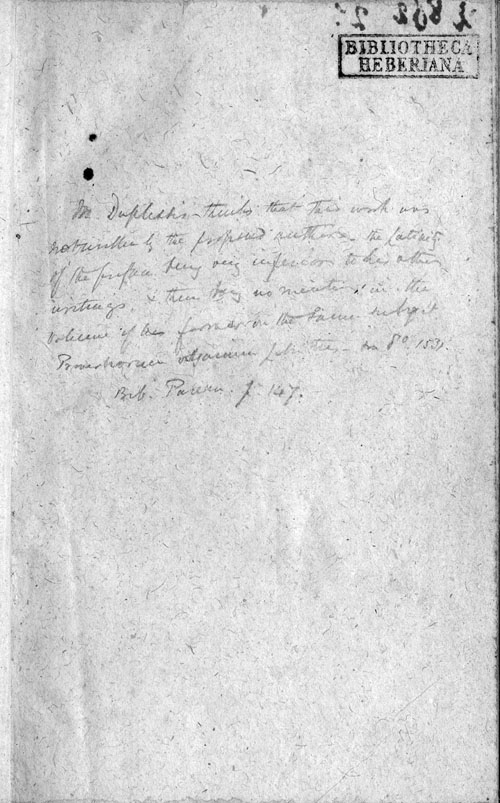 BIBLIOTHECA
HEBERIANA
Mr Duplessis thinks that this work was
not written by the proposed author the latinity
of the preface being very inferior to his other
writings, & there being no mention in the
volume of his former on the same subject
Proverborum 8o 153
Bib. Param. p. 147.